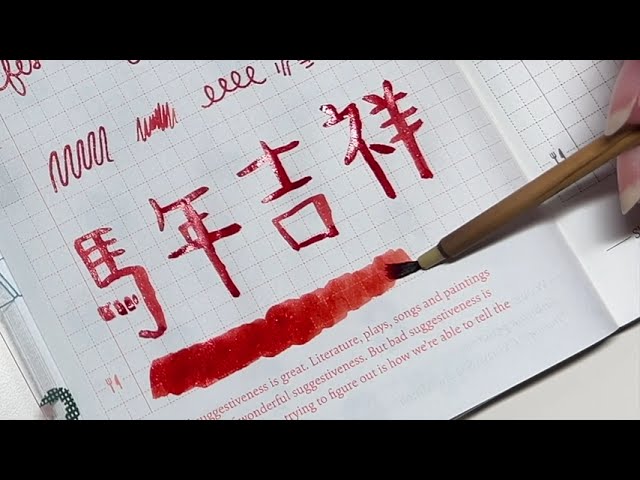 馬年吉祥
suggestiveness is great. Literature, plays, songs and paintings
wonderful suggestiveness. But bad suggestiveness is
trying to figure out is how we're able to tell the